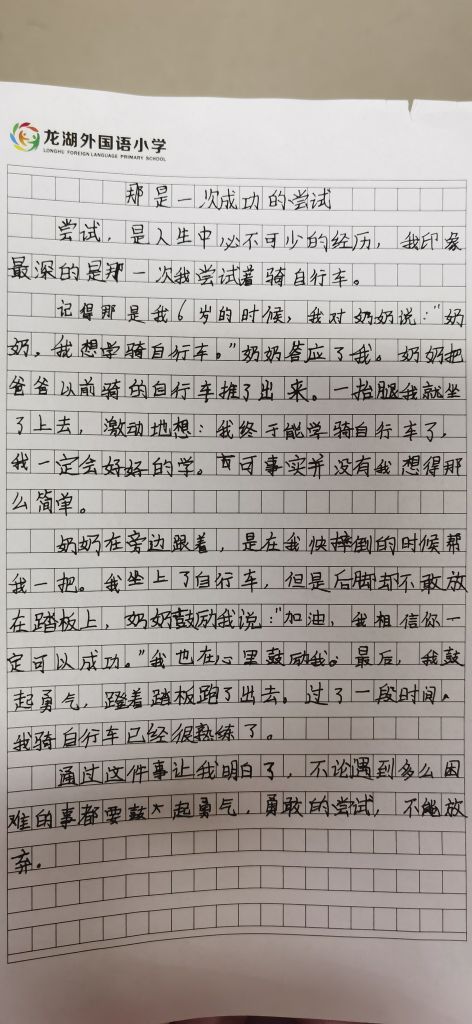 龙湖外国语小学
LONGHU FOREIGN LANGUAGE PRIMARY SCHOOL
那是一次成功的尝试
尝试，是人生中必不可少的经历，我印象
最深的是那一次我尝试着骑自行车。
记得那是我6岁的时候，我对奶奶说："奶
奶，我想学骑自行车。"奶奶答应了我。奶奶把
爸爸以前骑的自行车推了出来。一抬腿我就坐
了上去，激动地想：我终于能学骑自行车了，
我一定会好好的学。可事实并没有我想得那
么简单。
奶奶在旁边跟着，是在我快摔倒的时候帮
我一把。我坐上了自行车，但是后脚却不敢放
在踏板上，奶奶鼓励我说："加油，我相信你一
定可以成功。"我也在心里鼓励我。最后，我鼓
起勇气，蹬着踏板跑了出去。过了一段时间，
我骑自行车已经很熟练了。
通过这件事让我明白了，不论遇到多么困
难的事都要鼓起勇气，勇敢的尝试，不能放
弃。